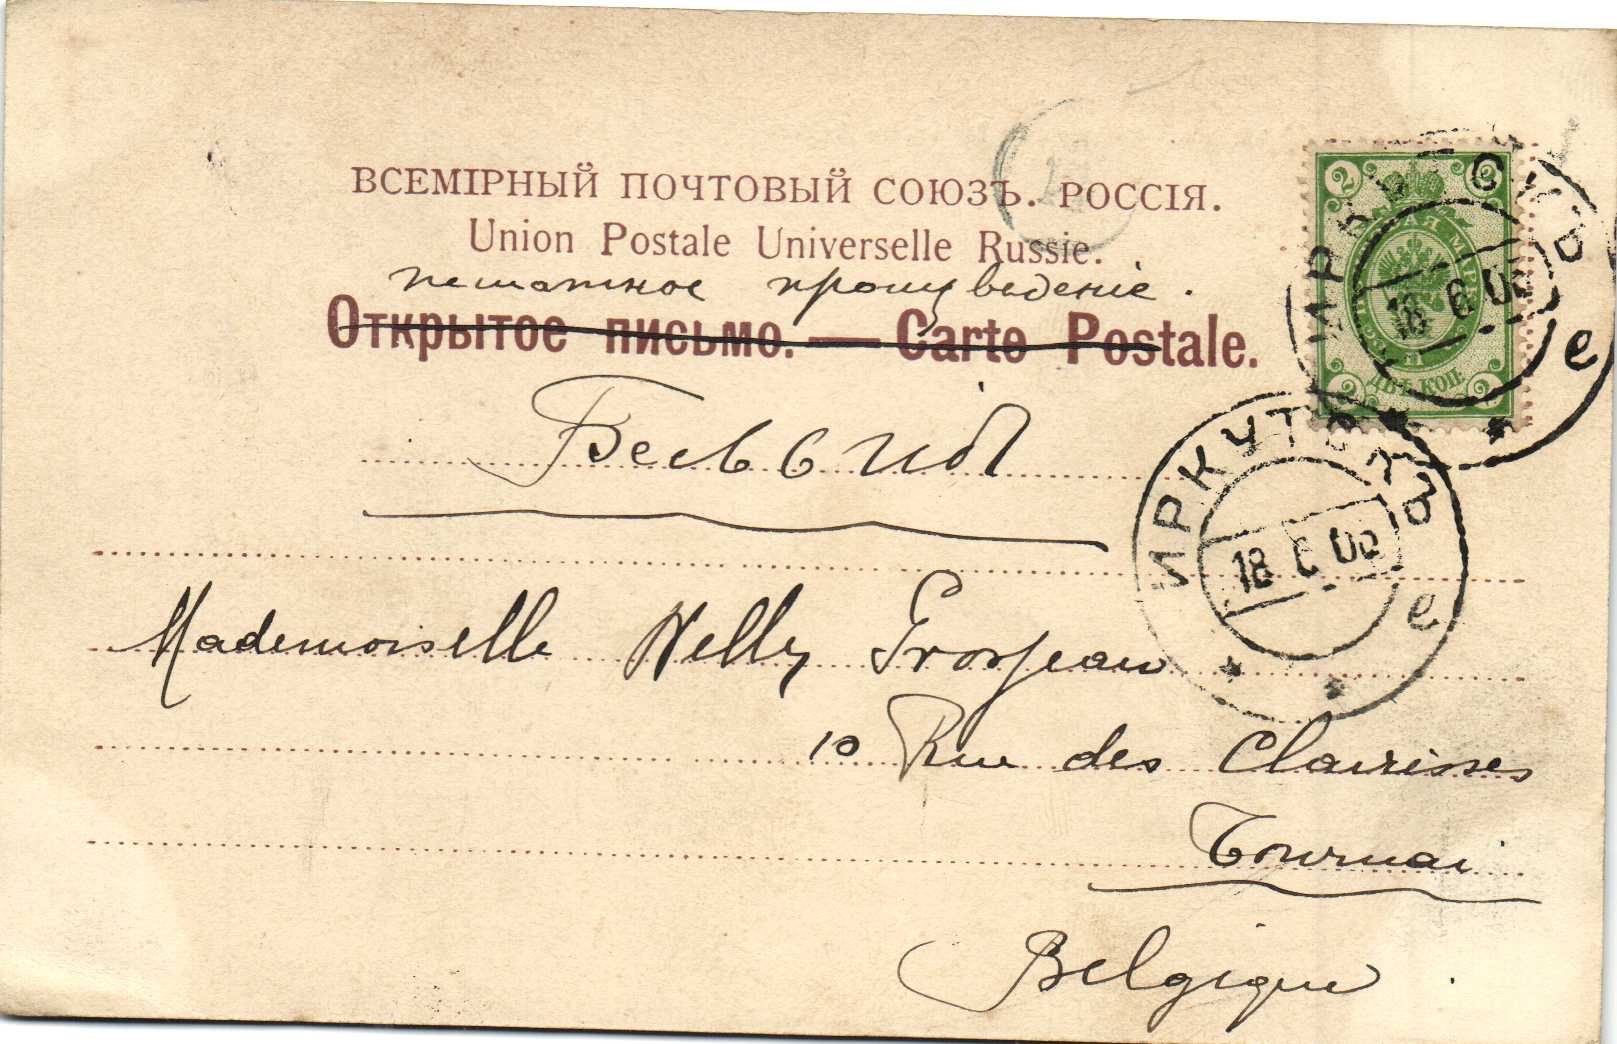 ВСЕМІРНЫЙ ПОЧТОВЫЙ СОЮЗЪ. РОССІЯ.
Union Postale Universelle Russie.
печатное произведеніе.
Открытое письмо. — Carte Postale.
Бельгія
Mademoiselle Nelly Grosjean
10 Rue des Clairisses
Tournai
Belgique
2 2
ДВѢ КОП.
2 2
ИРКУТСКЪ
18 6 05
е
ИРКУТСКЪ
18 6 05
е